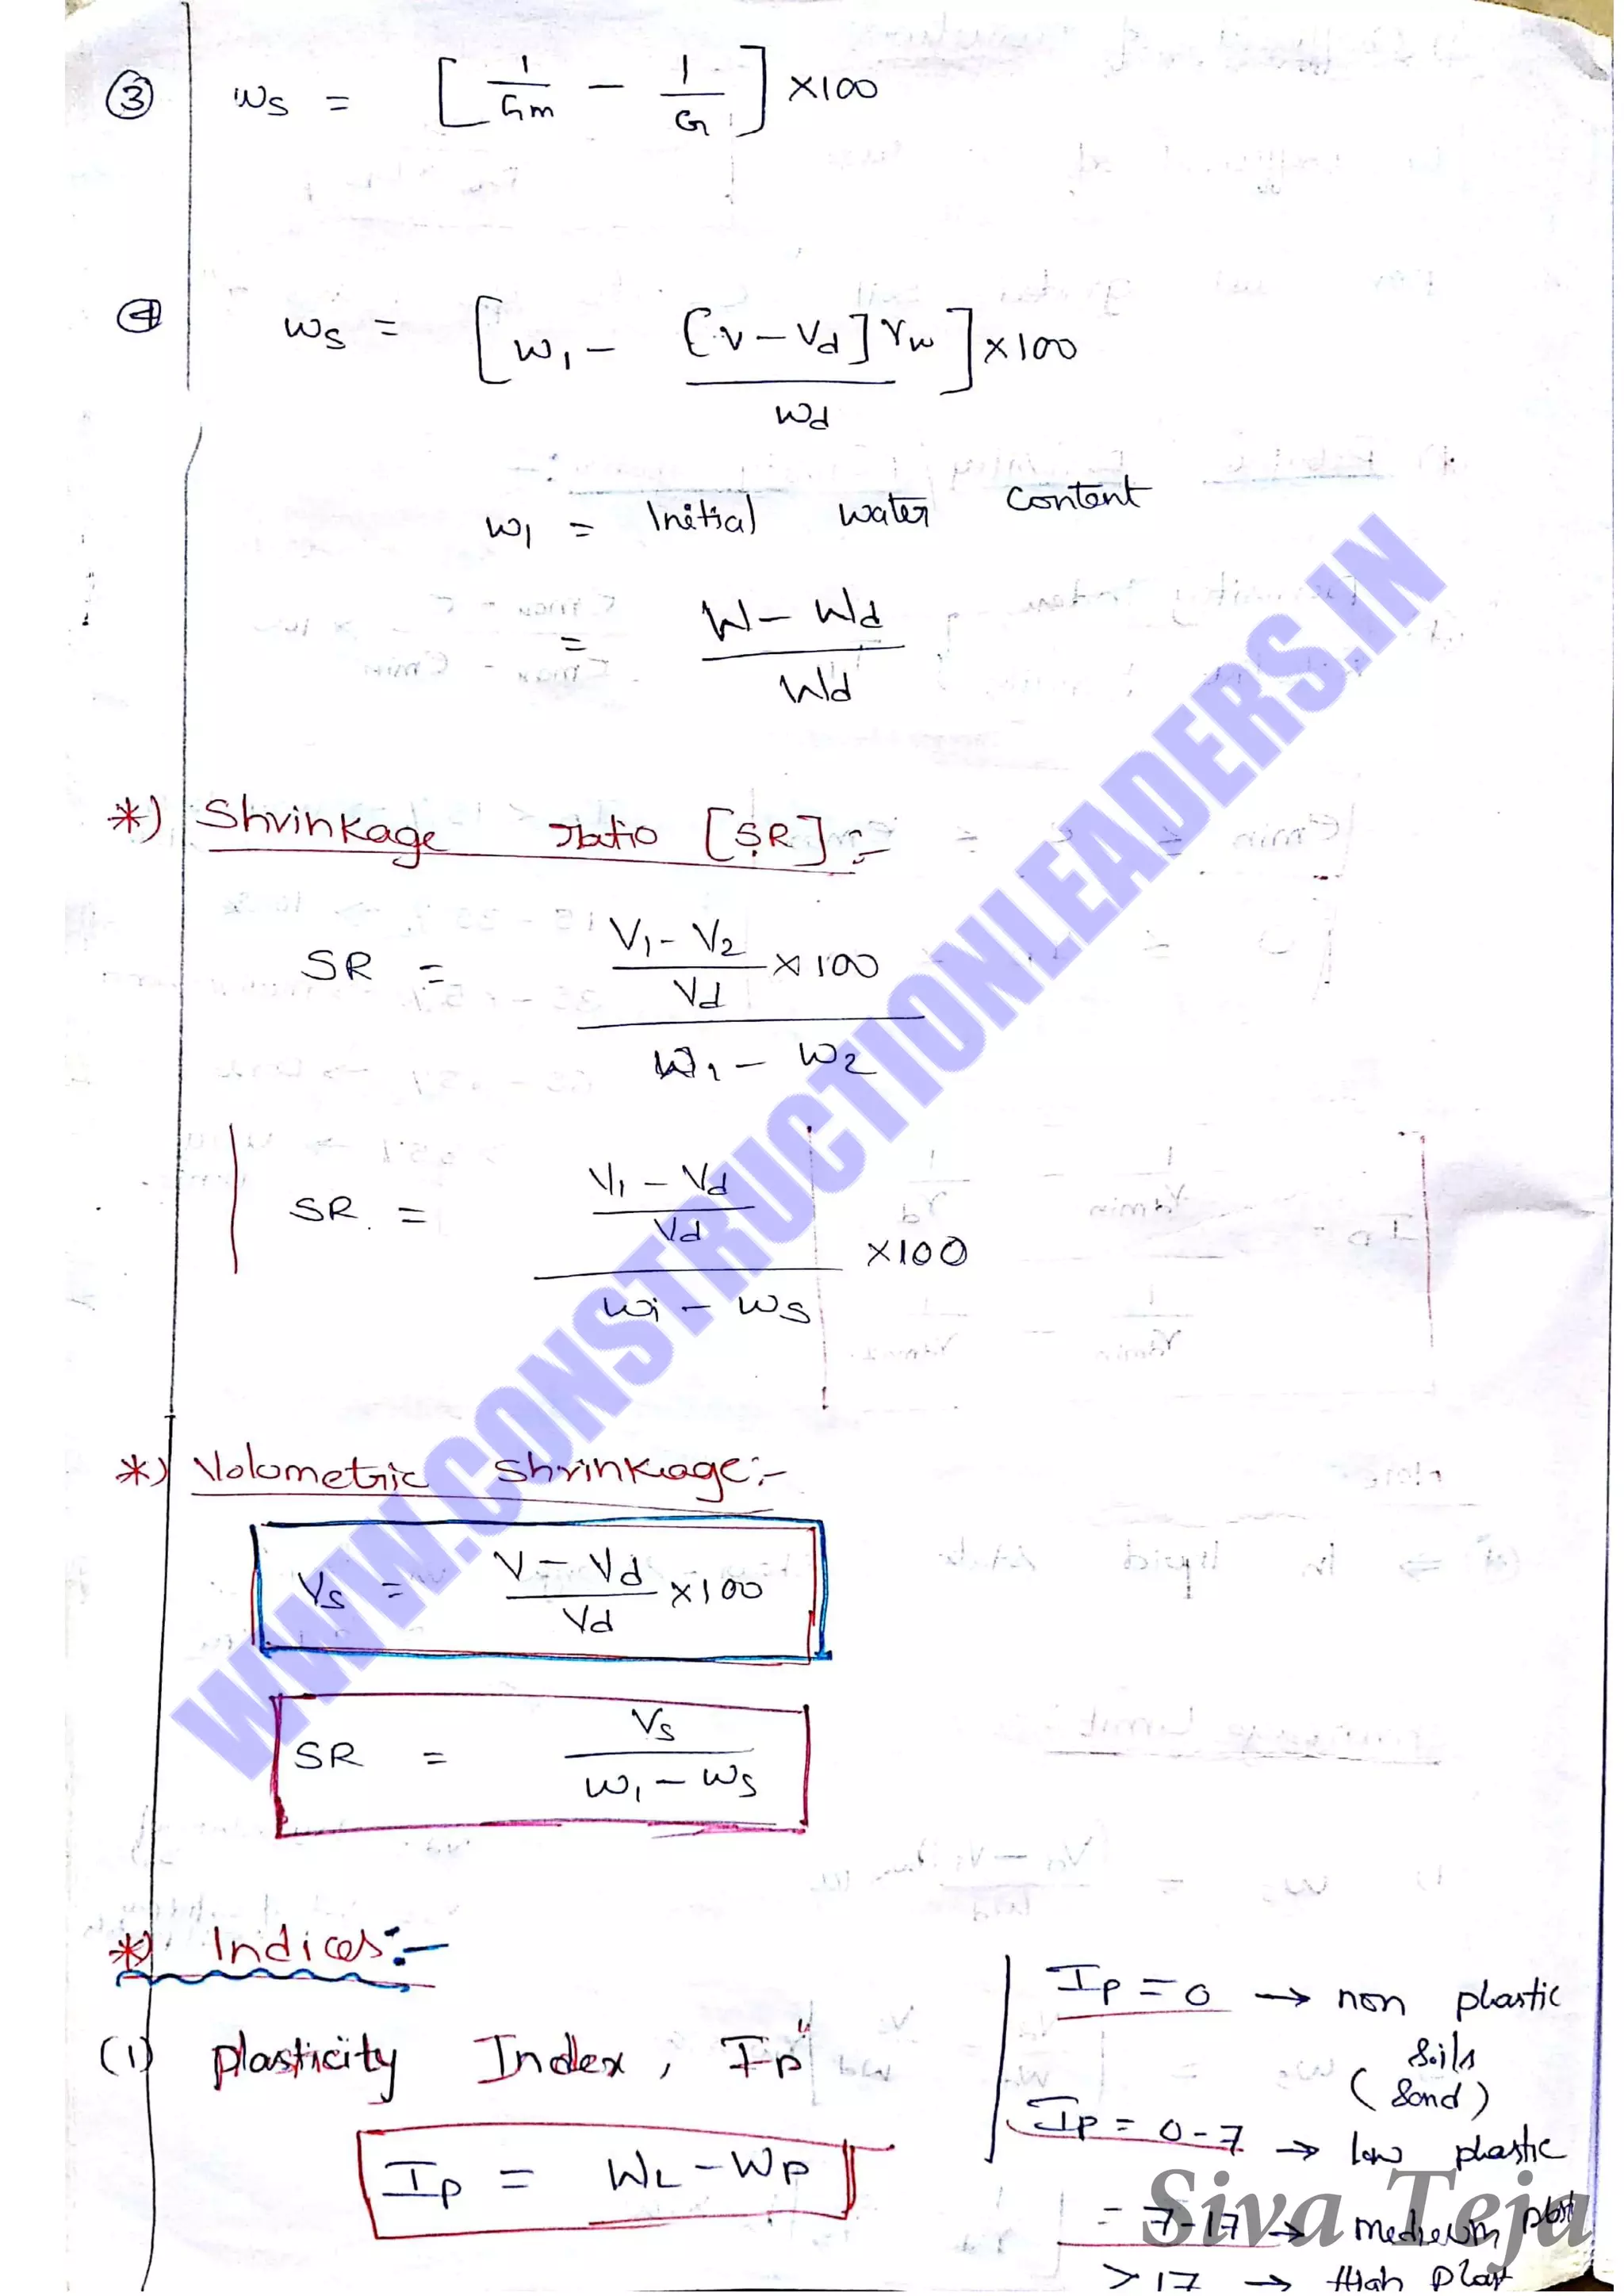 ③ ws = [ 1/Gm − 1/G ] ×100
④ ws = [ w1 − [v − Vd] γw / wd ] ×100
w1 = Initial water content
= W − Wd / Wd
*) Shrinkage ratio [SR] :-
SR = V1 − V2 / Vd ×100 / w1 − w2
SR = V1 − Vd / Vd / wi − ws ×100
*) Volumetric shrinkage:-
Vs = V − Vd / Vd ×100
SR = Vs / w1 − ws
*) Indices:-
(1) plasticity Index, Ip
Ip = WL − WP
Ip = 0 → non plastic
soils
(sand)
Ip = 0-7 → low plastic
= 7-17 → medium plast
> 17 → High plast
WWW.CONSTRUCTIONLEADERS.IN
Siva Teja